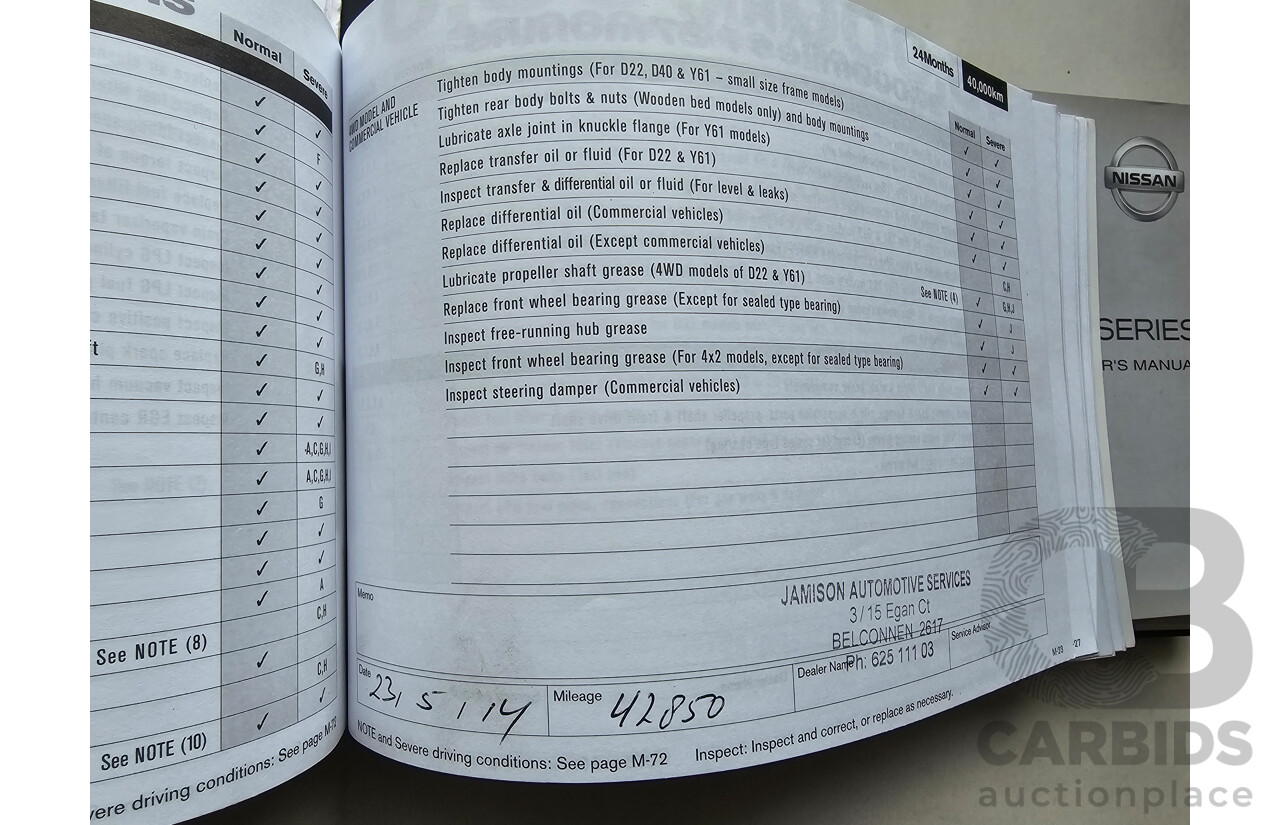 Normal
Severe
✓
✓
✓
F
✓
✓
✓
✓
✓
✓
✓
✓
✓
✓
✓
✓
✓
G,H
✓
✓
✓
✓
✓
A,C,G,H,I
✓
A,C,G,H,I
✓
G
✓
✓
✓
✓
✓
A
C,H
See NOTE (8)
✓
C,H
✓
See NOTE (10)
✓
vere driving conditions: See page M-72
24Months
40,000km
4WD MODEL AND
COMMERCIAL VEHICLE
Normal
Severe
Tighten body mountings (For D22, D40 & Y61 – small size frame models)
Tighten rear body bolts & nuts (Wooden bed models only) and body mountings
Lubricate axle joint in knuckle flange (For Y61 models)
Replace transfer oil or fluid (For D22 & Y61)
Inspect transfer & differential oil or fluid (For level & leaks)
Replace differential oil (Commercial vehicles)
Replace differential oil (Except commercial vehicles)
Lubricate propeller shaft grease (4WD models of D22 & Y61)
Replace front wheel bearing grease (Except for sealed type bearing) See NOTE (4)
Inspect free-running hub grease
Inspect front wheel bearing grease (For 4x2 models, except for sealed type bearing)
Inspect steering damper (Commercial vehicles)
✓ ✓
✓ ✓
✓ ✓
✓ ✓
✓ ✓
C,H
✓ G,H,J
✓ J
✓ J
✓ ✓
✓ ✓
Memo
JAMISON AUTOMOTIVE SERVICES
3 / 15 Egan Ct
BELCONNEN 2617
Ph: 625 111 03
Date 23, 5, 14
Mileage 42850
Dealer Name
Service Advisor
NOTE and Severe driving conditions: See page M-72
Inspect: Inspect and correct, or replace as necessary.
M-23
-27
NISSAN
SERIES
R'S MANUA
CB
CARBIDS
auctionplace